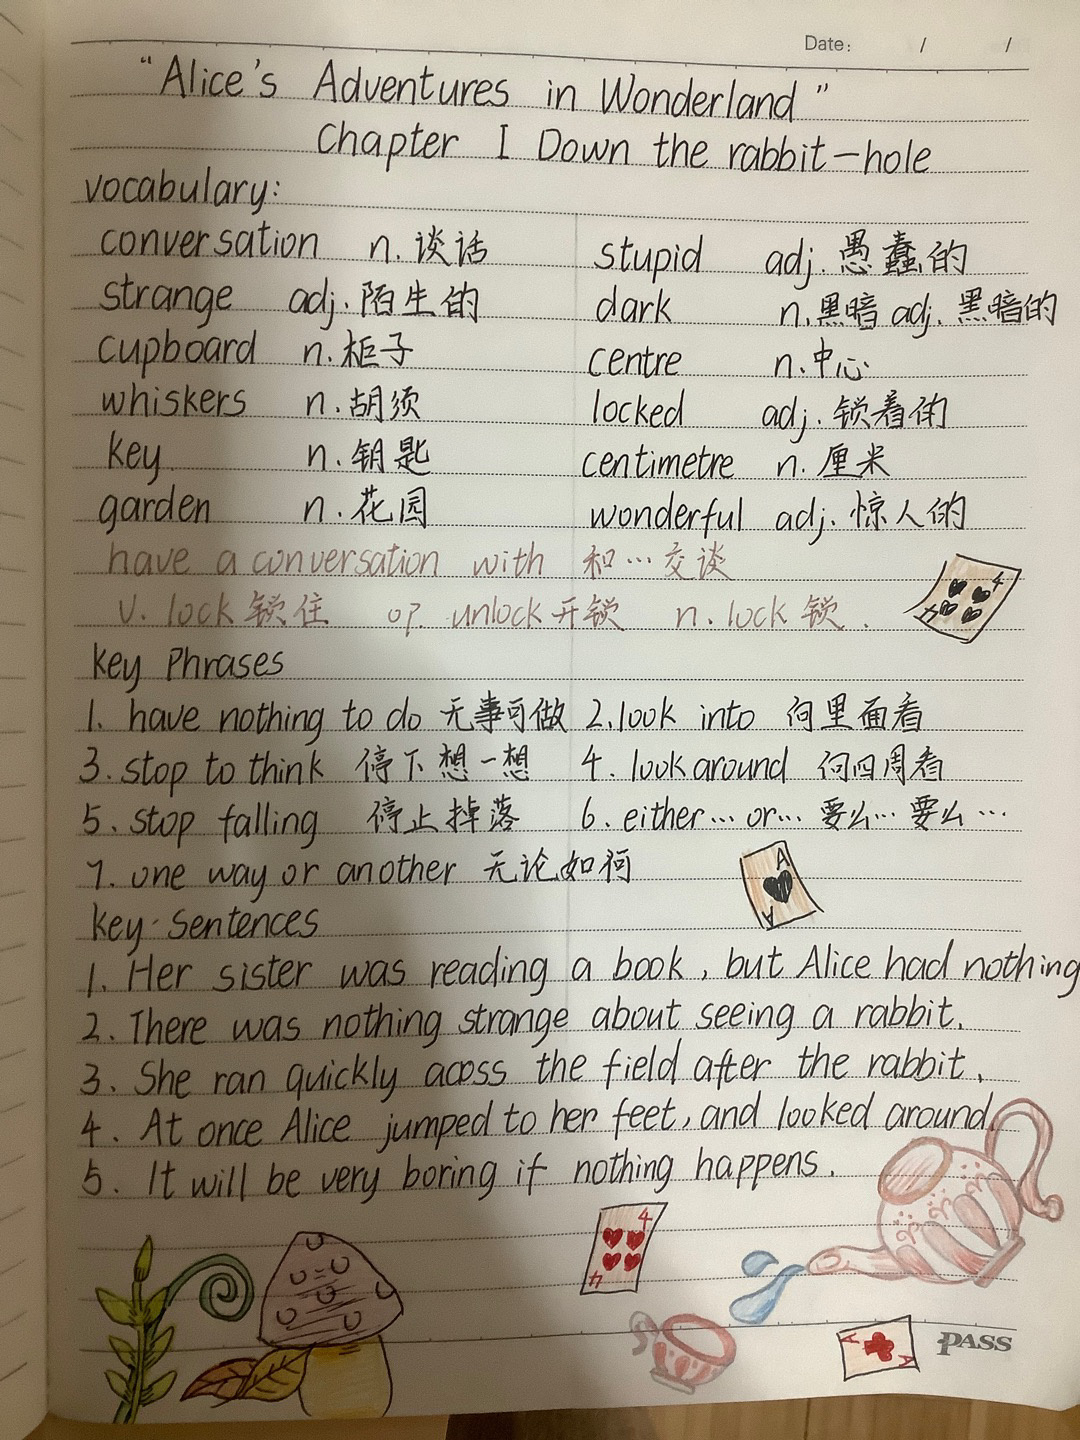 Date: / /
"Alice's Adventures in Wonderland"
Chapter I Down the rabbit-hole
vocabulary:
conversation n. 谈话 stupid adj. 愚蠢的
strange adj. 陌生的 dark n. 黑暗 adj. 黑暗的
cupboard n. 柜子 centre n. 中心
whiskers n. 胡须 locked adj. 锁着的
key n. 钥匙 centimetre n. 厘米
garden n. 花园 wonderful adj. 惊人的
have a conversation with 和…交谈
v. lock 锁住 op. unlock 开锁 n. lock 锁.
key Phrases
1. have nothing to do 无事可做 2. look into 向里面看
3. stop to think 停下想一想 4. look around 向四周看
5. stop falling 停止掉落 6. either… or… 要么… 要么…
7. one way or another 无论如何
key Sentences
1. Her sister was reading a book, but Alice had nothing
2. There was nothing strange about seeing a rabbit.
3. She ran quickly acoss the field after the rabbit.
4. At once Alice jumped to her feet, and looked around.
5. It will be very boring if nothing happens.
4 4
A A
4 4
A A
PASS